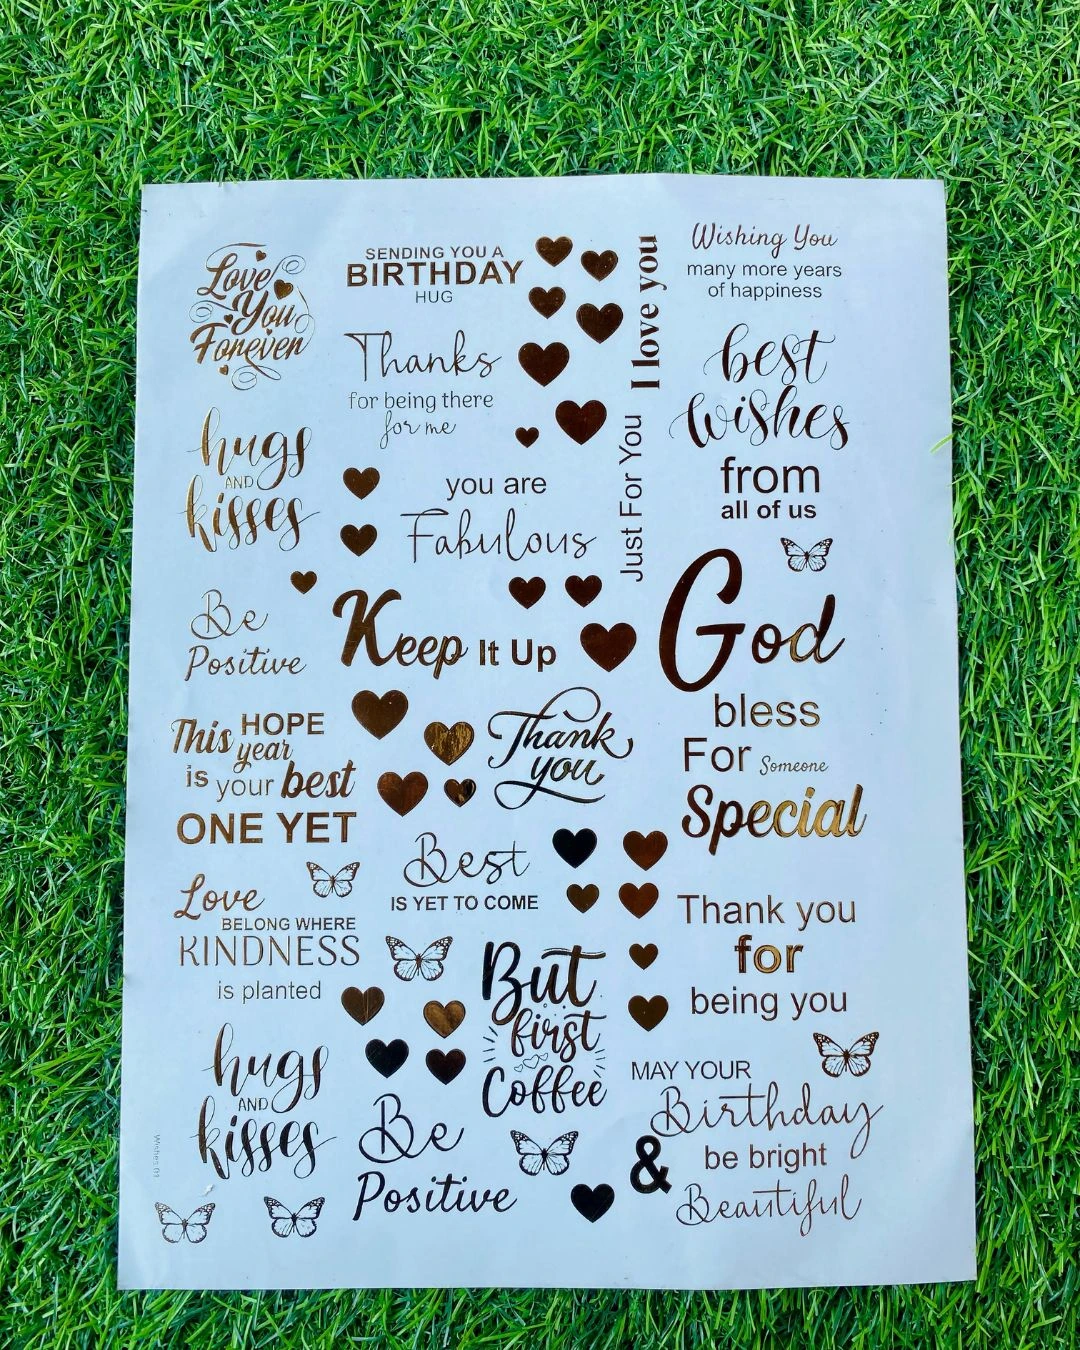 Love
You
Forever
SENDING YOU A
BIRTHDAY
HUG
I love you
Wishing You
many more years
of happiness
Thanks
for being there
for me
best
wishes
from
all of us
hugs
AND
kisses
you are
Fabulous
Just For You
Be
Positive
Keep It Up
God
bless
This HOPE
year
is your best
ONE YET
Thank
you
For Someone
Special
Best
IS YET TO COME
Love
BELONG WHERE
KINDNESS
is planted
Thank you
for
being you
But
first
Coffee
hugs
AND
kisses
Be
Positive
MAY YOUR
Birthday
be bright
&
Beautiful